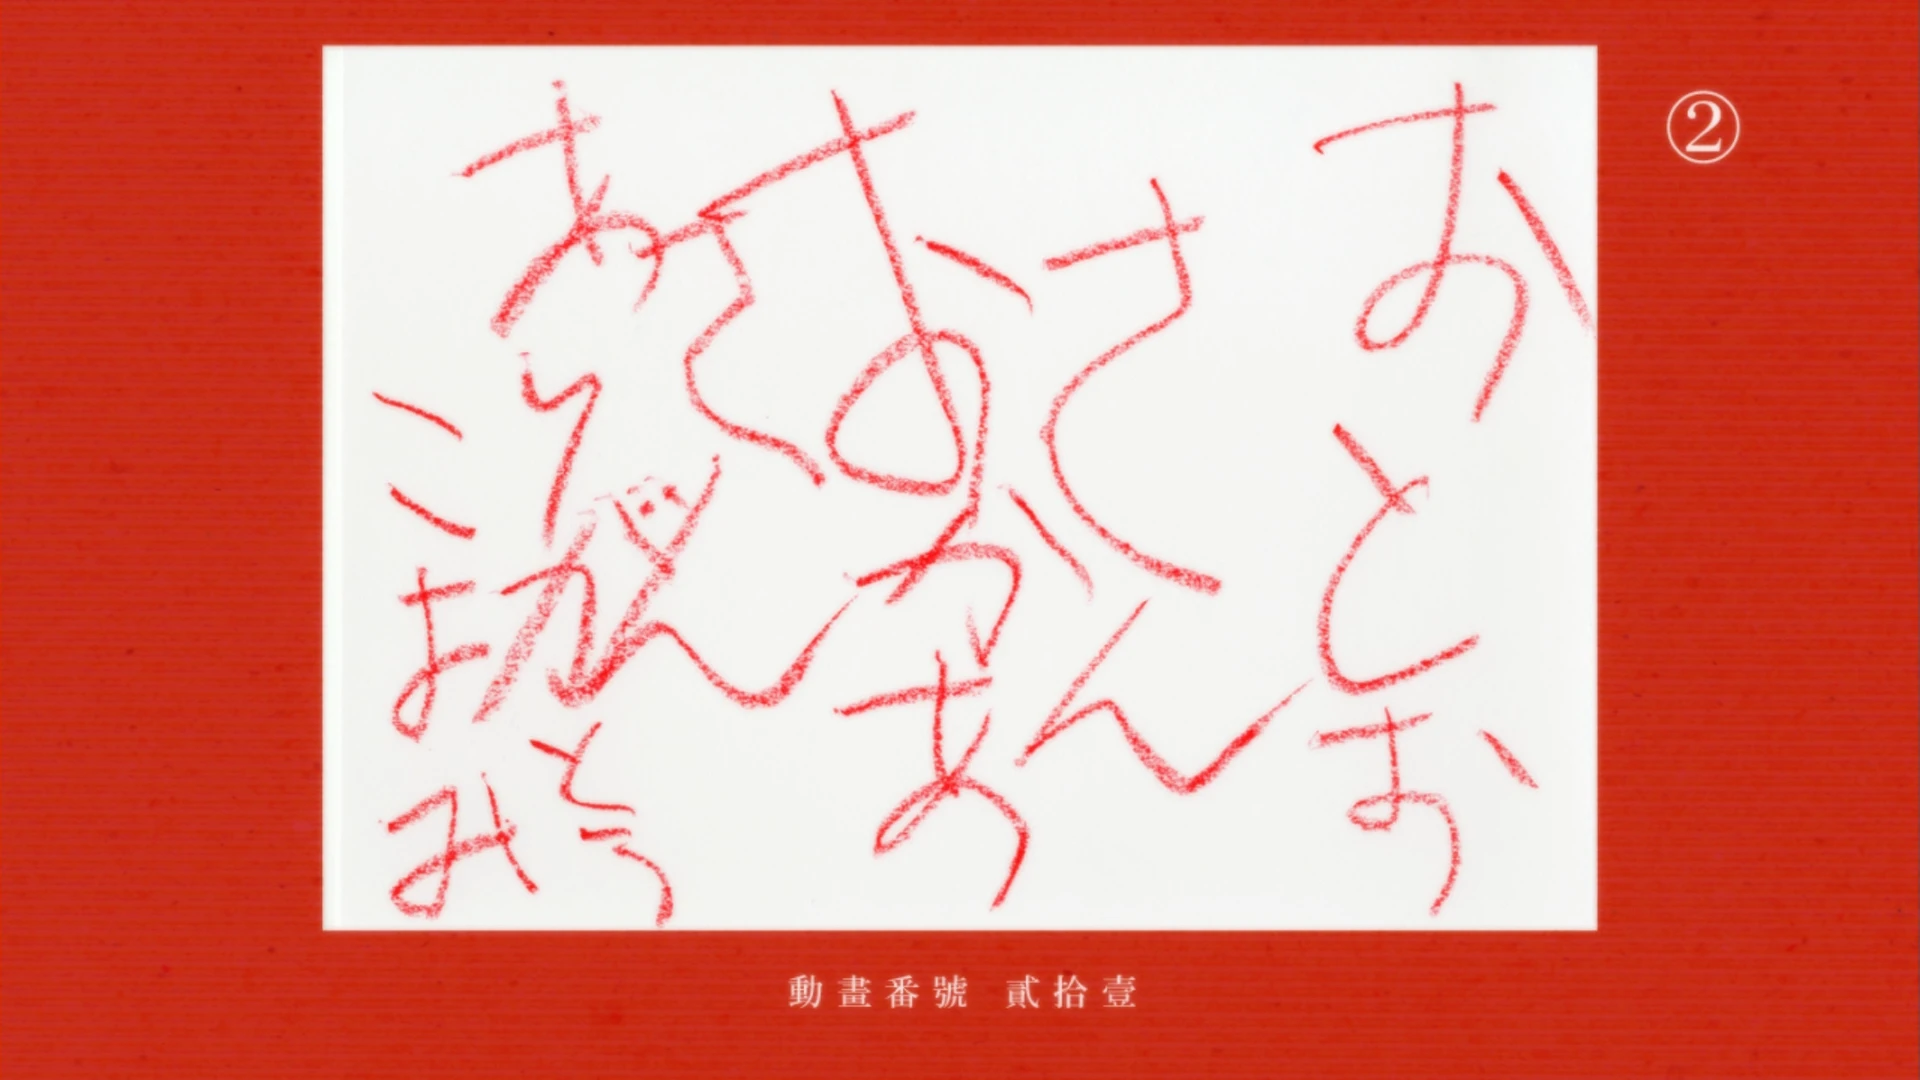 ②
おとお
さん
おかあ
さん
ありがとう
こよみ
動畫番號 貳拾壹